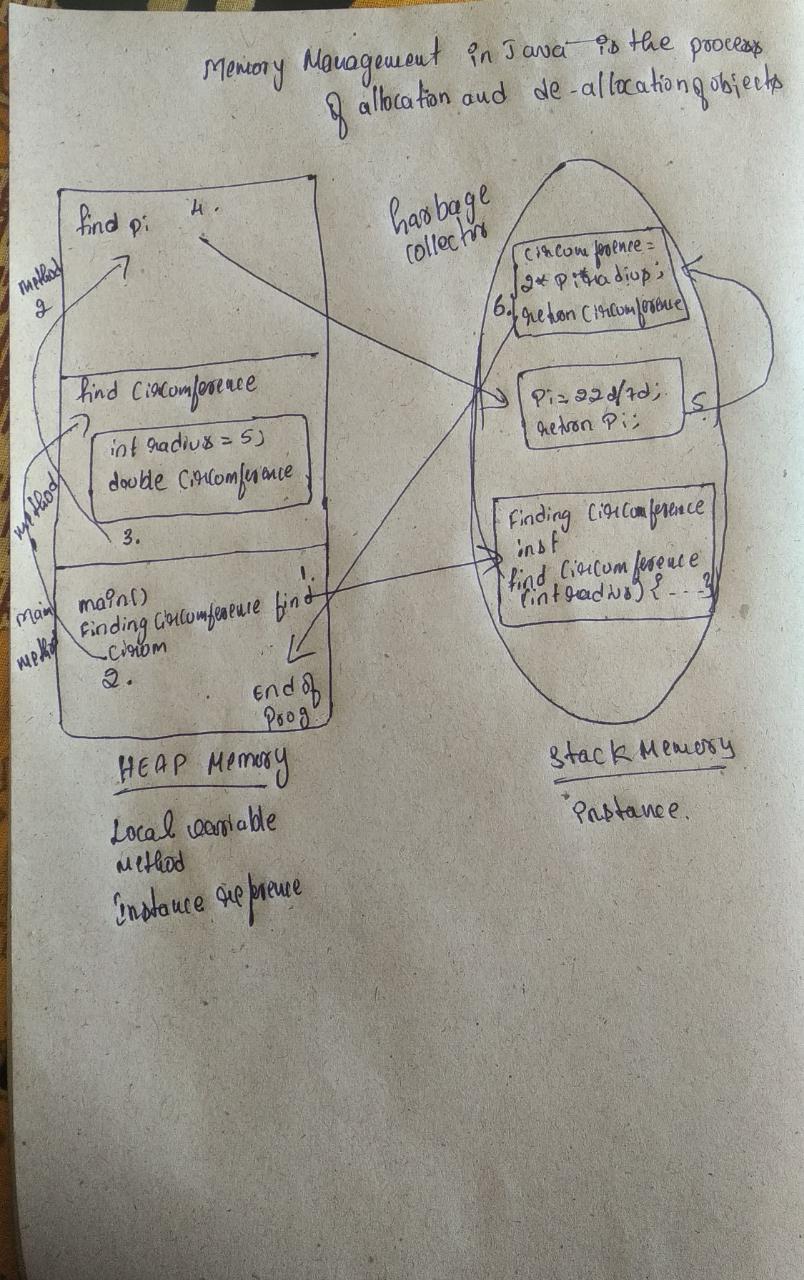 Memory Management in Java is the process
of allocation and de-allocation of objects
find pi 4.
method
2
find Circomference
int radius = 5;
double Circomference
3.
method
main()
Finding Circomference find
1.
Circom
2.
main
method
End of
Prog
HEAP Memory
Local variable
Method
Instance reference
Garbage
collector
Circomference =
2* pi*radius;
6. retron Circomference
Pi = 22d/7d;
retron Pi;
5
Finding Circomference
inst
find Circomference
(int radius) { - - - }
Stack Memory
Instance.